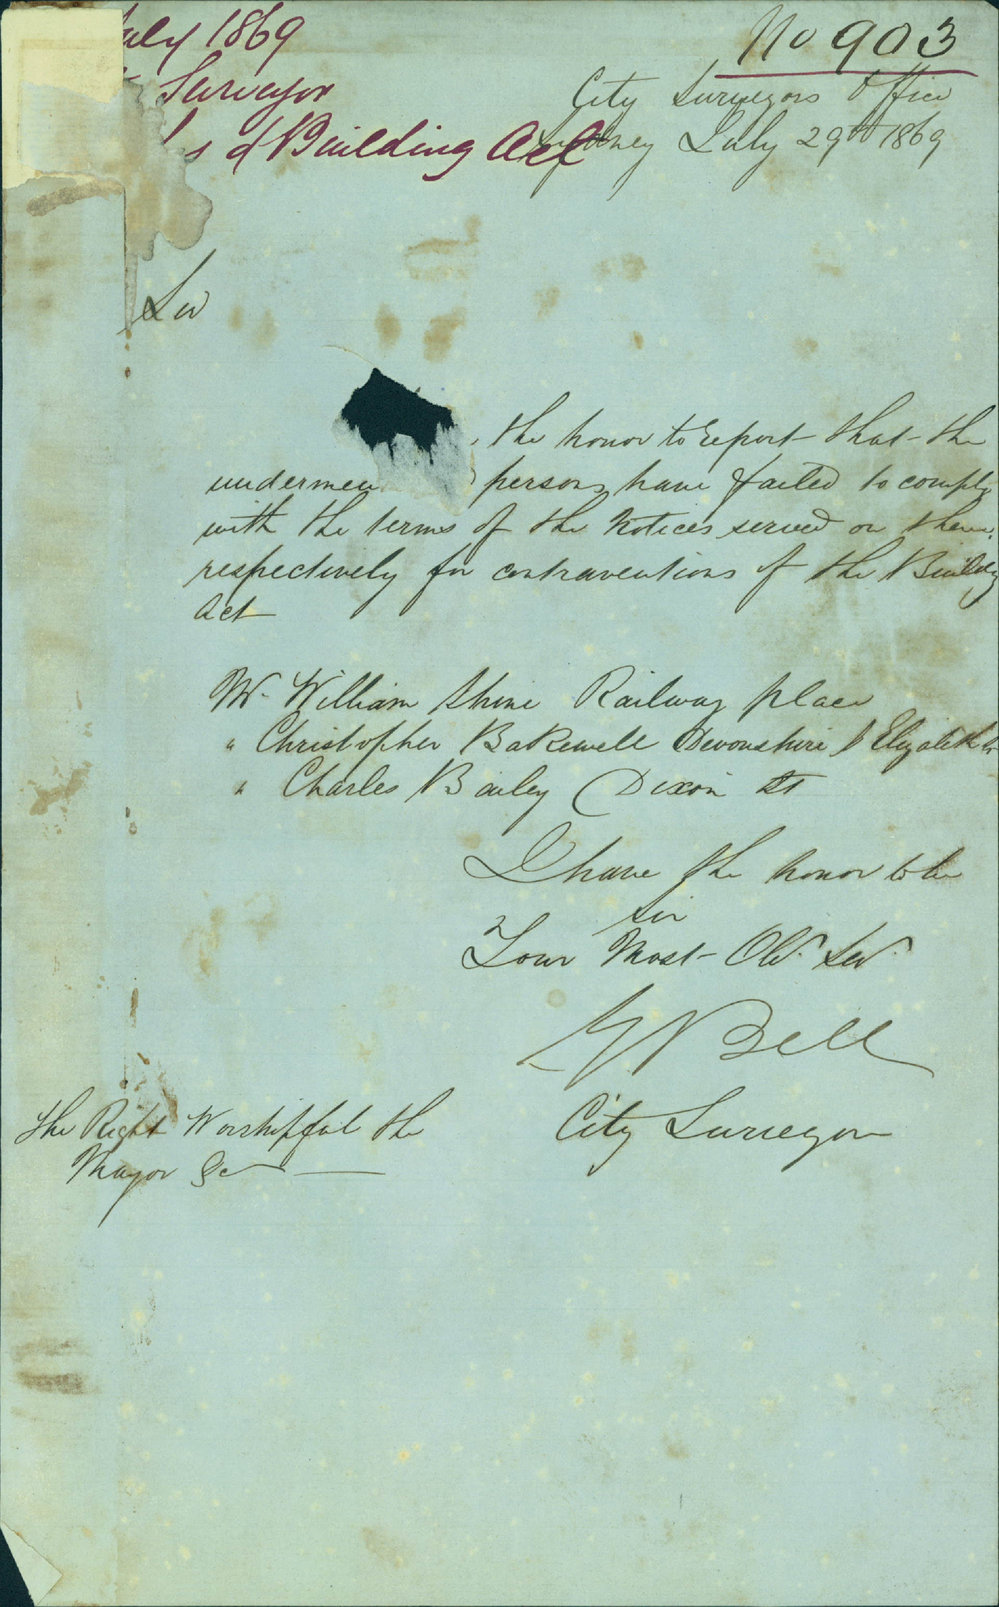 July 1869
Surveyor
s of Building Act
No 903
City Surveyors Office
Sydney July 29th 1869
Sir
the honor to report that the
undermen persons have failed to comply
with the terms of the Notices served on them
respectively for contraventions of the Building
Act
Mr William Shine Railway place
" Christopher Bakewell Devonshire & Elizabeth St
" Charles Bailey Dixon St
I have the honor to be
Sir
Your Most Obt. Sevt.
Bell
City Surveyor
The Right Worshipful the
Mayor &c